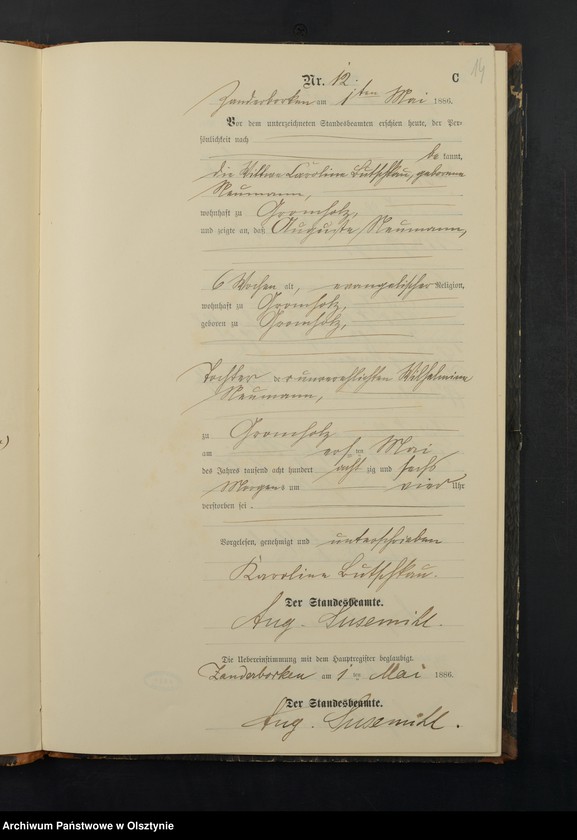 14
Nr. 12. C
Zanderborken am 1ten Mai 1886.
Vor dem unterzeichneten Standesbeamten erschien heute, der Per-
sönlichkeit nach
be kannt,
die Wittwe Caroline Butschkau, geborene
Neumann,
wohnhaft zu Gromholz,
und zeigte an, daß Auguste Neumann,
6 Wochen alt, evangelischer Religion,
wohnhaft zu Gromholz,
geboren zu Gromholz,
Tochter der unverehlichten Wilhelmine
Neumann,
zu Gromholz
am ersten Mai
des Jahres tausend acht hundert acht zig und sechs
Morgens um vier Uhr
verstorben sei.
Vorgelesen, genehmigt und unterschrieben
Karoline Butschkau.
Der Standesbeamte.
Aug. Susemihl.
Die Uebereinstimmung mit dem Hauptregister beglaubigt.
Zanderborken am 1ten Mai 1886.
Der Standesbeamte.
Aug. Susemihl.
Archiwum Państwowe w Olsztynie